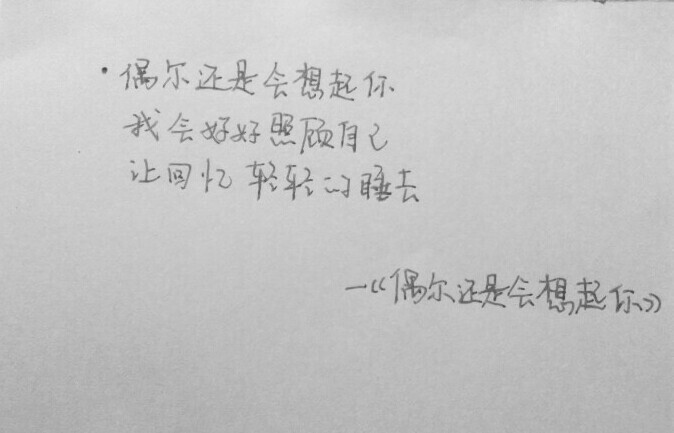 ·偶尔还是会想起你
我会好好照顾自己
让回忆轻轻的睡去
—《偶尔还是会想起你》